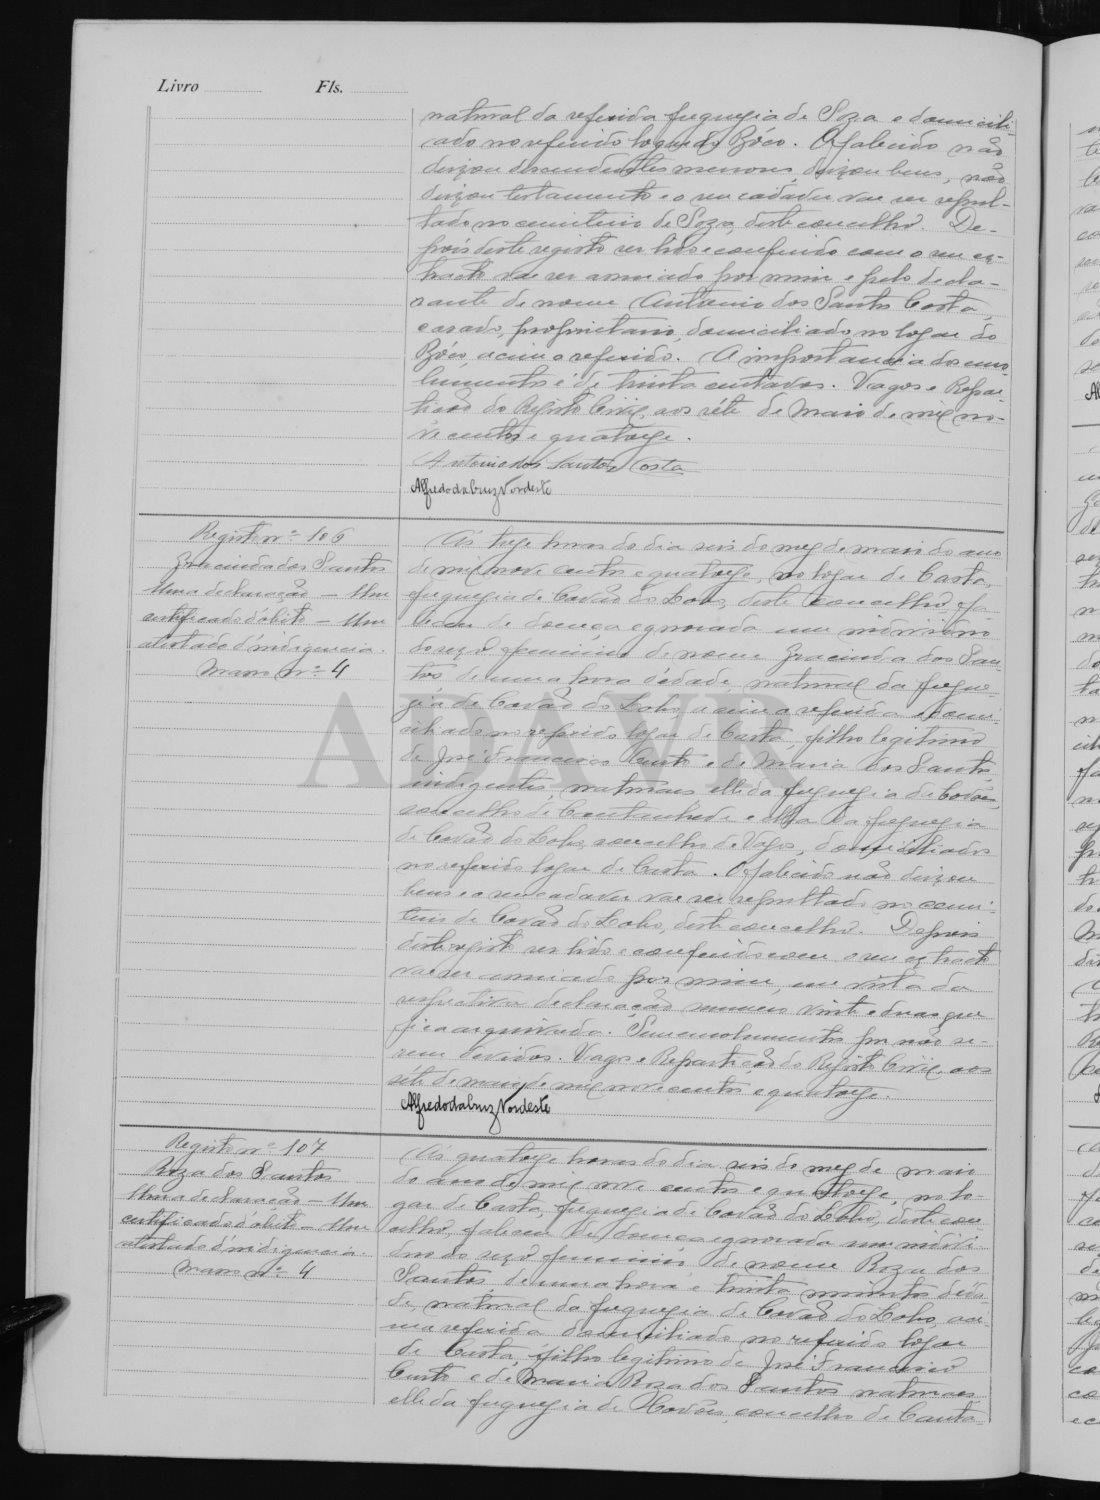 Livro Fls.
natural da referida freguezia de Soza e domicili-
ado no referido logar do Bóco. O falecido não
deixou descendentes menores, deixou bens, não
deixou testamento e o seu cadaver vae ser sepul-
tado no cemiterio de Soza, deste concelho. De-
pois deste registo ser lido e conferido com o seu ex-
tracto vae ser assinado por mim e pelo decla-
rante de nome Antonio dos Santos Costa,
casado, proprietario, domiciliado no logar do
Bóco, acima referido. A importancia dos emo-
lumentos é de trinta centavos. Vagos e Repar-
tição do Registo Civil, aos séte de Maio de mil no-
vecentos e quatorze.
Antonio dos Santos Costa
Alfredo da Cruz Nordeste
Registo nº 106
Gracinda dos Santos
Uma declaração - Um
certificado d'óbito - Um
atestado d'indigencia.
Maço nº 4
Ás treze horas do dia seis do mez de maio do ano
de mil nove centos e quatorze, no logar de
freguezia de Covão do Lobo, deste concelho, fa-
leceu de doença ignorada um individuo
do sexo feminino de nome Gracinda dos San-
tos de uma hora d'edade, natural da fregue-
zia de Covão do Lobo, acima referida e domi-
ciliado no referido logar de filho legitimo
de José Francisco e de Maria dos Santos,
indigentes, naturaes elle da freguezia de
concelho de Cantanhede e ella da freguezia
de Covão do Lobo, concelho de Vagos, domiciliados
no referido logar de O falecido não deixou
bens e o seu cadaver vae ser sepultado no cemi-
terio de Covão do Lobo, deste concelho. Depois
deste registo ser lido e conferido com o seu extracto
vae ser assinado por mim, em vista da
respectiva declaração numero vinte e duas que
fica arquivada. Sem emolumentos por não se-
rem devidos. Vagos e Repartição do Registo Civil, aos
séte de maio de mil nove centos e quatorze.
Alfredo da Cruz Nordeste
Registo nº 107
Roza dos Santos
Uma declaração - Um
certificado d'óbito - Um
atestado d'indigencia.
Maço nº 4
Ás quatorze horas do dia seis do mez de maio
do ano de mil nove centos e quatorze, no lo-
gar de freguezia de Covão do Lobo, deste con-
celho, faleceu de doença ignorada um indivi-
duo do sexo feminino de nome Roza dos
Santos, de uma hora e trinta minutos d'eda-
de, natural da freguezia de Covão do Lobo, aci-
ma referida domiciliado no referido logar
de filho legitimo de José Francisco
e de Maria Roza dos Santos naturaes
elle da freguezia de concelho de Canta-
ADAVR